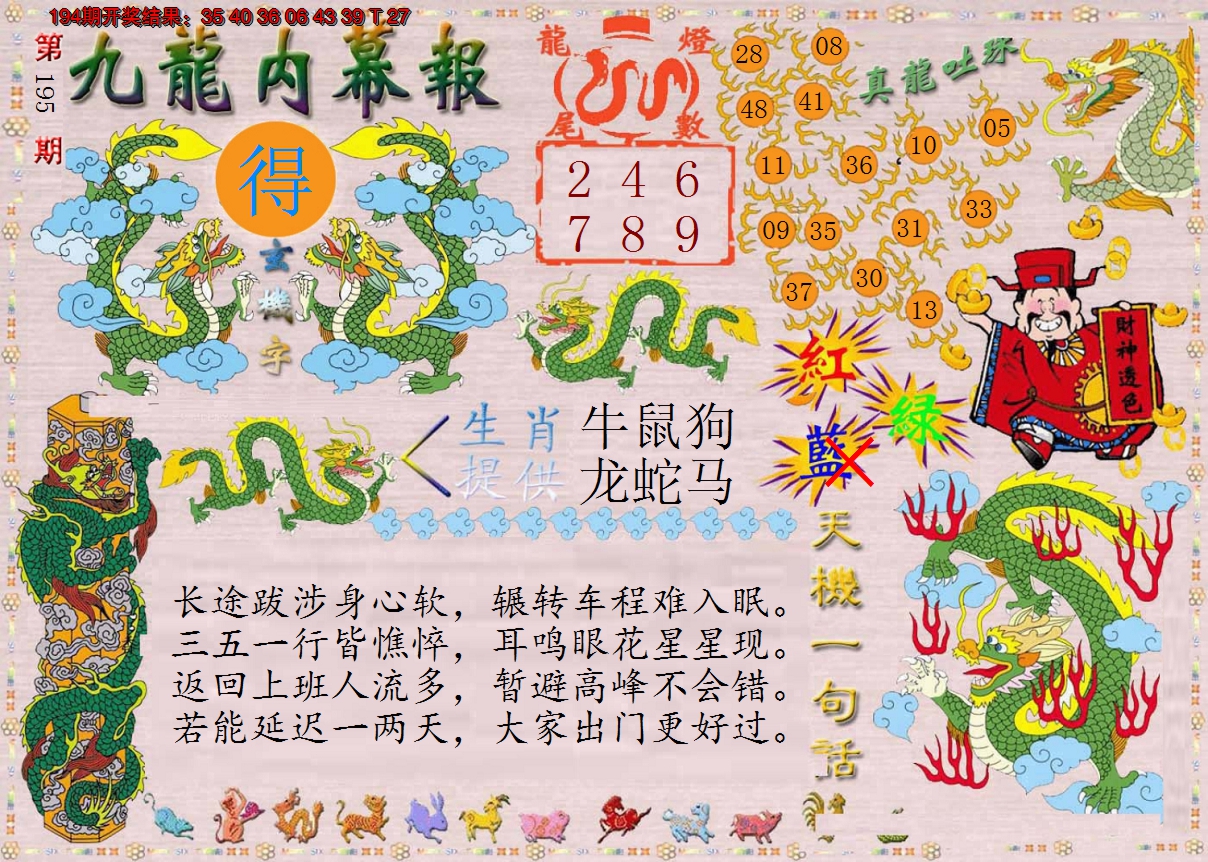 194期开奖结果：35 40 36 06 43 39 T 27
第195期
九龍内幕報
得
玄機字
龍燈
尾數
2 4 6
7 8 9
真龍吐珠
28 08
48 41
10 05
11 36
33
09 35 31
30
37 13
紅
綠
藍
財神透色
生肖 牛鼠狗
提供 龙蛇马
天機一句话
长途跋涉身心软，辗转车程难入眠。
三五一行皆憔悴，耳鸣眼花星星现。
返回上班人流多，暂避高峰不会错。
若能延迟一两天，大家出门更好过。